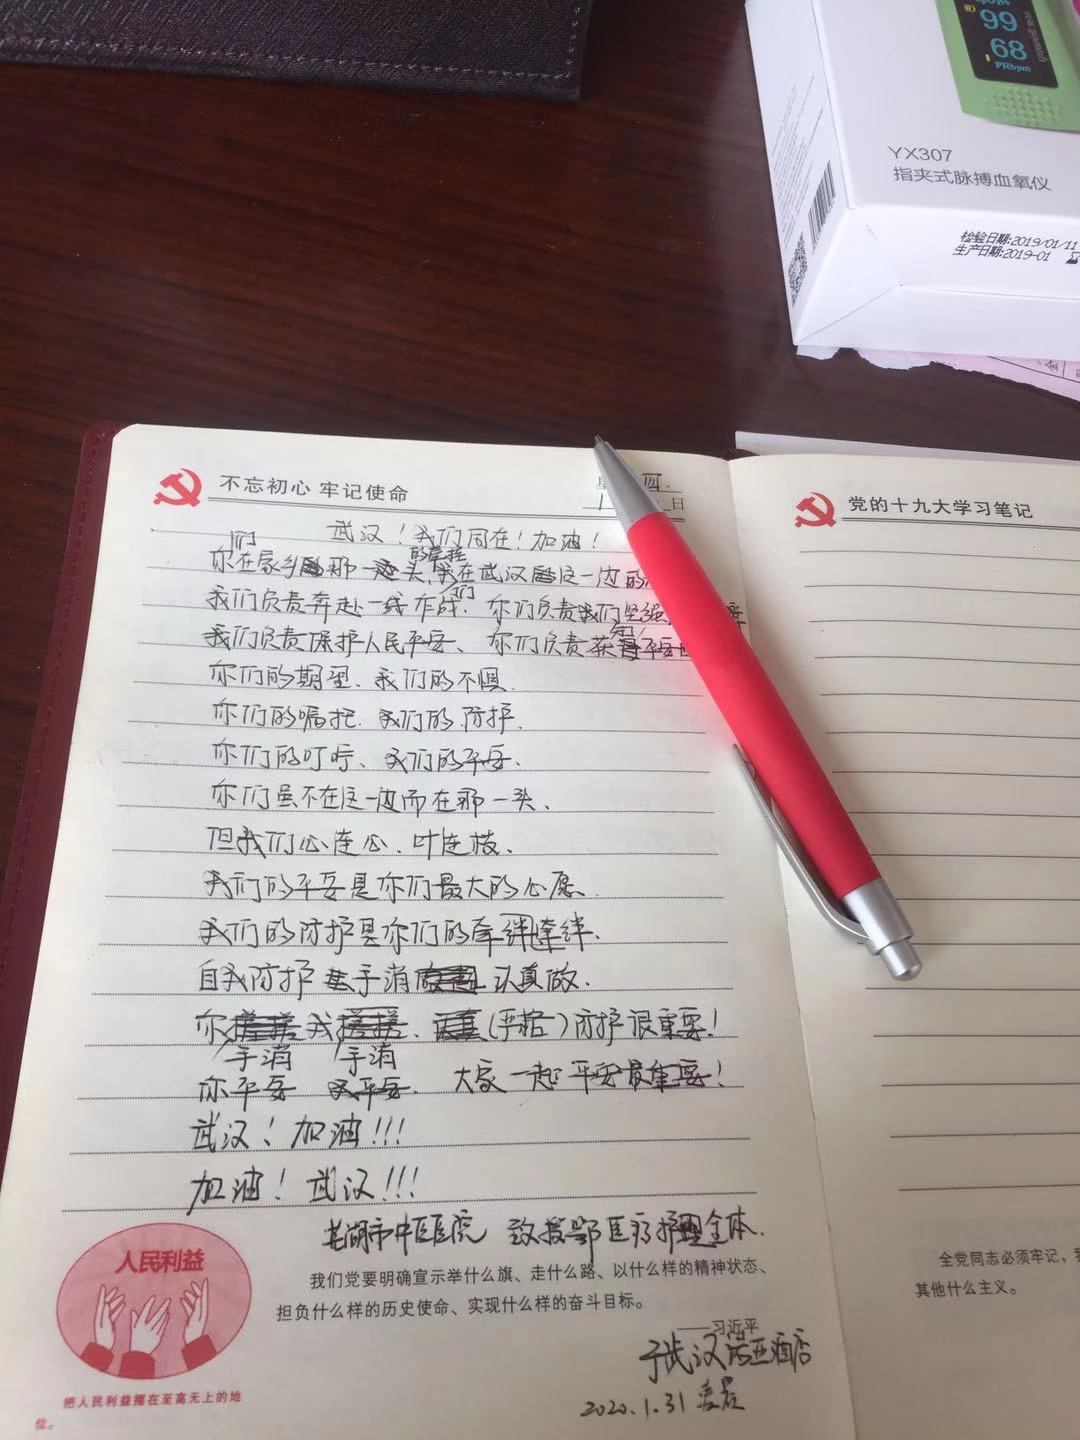 99
68
PRbpm
YX307
指夹式脉搏血氧仪
检验日期:2019/01/11
生产日期:2019-01
不忘初心 牢记使命
日
武汉！我们同在！加油！
们
的牵挂
你在家乡那一头、我在武汉这一边
们
我们负责奔赴一线作战、你们负责我们坚强
我们负责保护人民平安、你们负责获平安
你们的期望、我们的不惧.
你们的嘱托、我们的防护.
你们的叮咛、我们的平安.
你们虽不在这一边而在那一头、
但我们心连心、叶连枝、
我们的平安是你们最大的心愿、
我们的防护是你们的牵绊牵绊.
自我防护 手消 认真做.
你 我 、 (严格)防护很重要！
手消 手消
你平安 我平安. 大家一起平安最重要！
武汉！加油!!!
加油！武汉!!!
芜湖市中医医院 致援鄂医疗护理全体.
人民利益
把人民利益摆在至高无上的地
位。
我们党要明确宣示举什么旗、走什么路、以什么样的精神状态、
担负什么样的历史使命、实现什么样的奋斗目标。
——习近平
于武汉 酒店
2020.1.31 凌晨
党的十九大学习笔记
全党同志必须牢记，
其他什么主义。